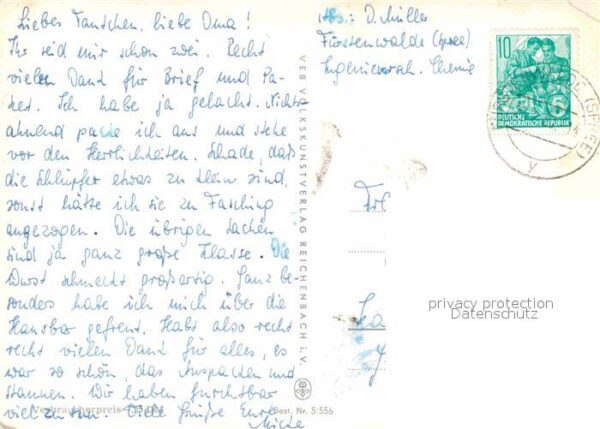 Liebes Tantchen, liebe Oma!
Ihr seid mir schon zwei. Recht
vielen Dank für Brief und Pa-
ket. Ich habe ja gelacht. Nichts
ahnend packe ich aus und stehe
vor den Herrlichkeiten. Schade, daß
die Schlüpfer etwas zu klein sind,
sonst hätte ich sie zu Fasching
angezogen. Die übrigen Sachen
sind ja ganz große Klasse. Die
Wurst schmeckt großartig. Ganz be-
sonders habe ich mich über die
gefreut. Habt also recht
recht vielen Dank für alles, es
war so schön, das Auspacken und
Staunen. Wir haben furchtbar
viel zu tun. Viele Grüße Eure
Verbraucherpreis
Best. Nr. 5/556
VEB VOLKSKUNSTVERLAG REICHENBACH i. V.
Abs.: D. Müller
Fürstenwalde (Spree)
Ingenieursch. Chemie
10
5
DEUTSCHE
DEMOKRATISCHE REPUBLIK
(SPREE)
y
privacy protection
Datenschutz